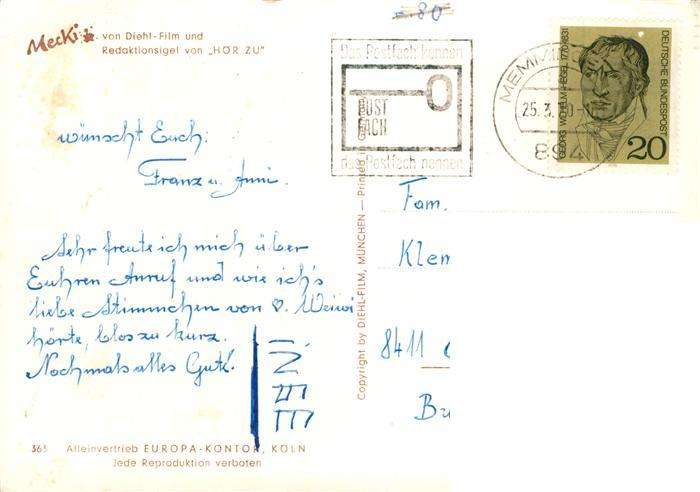 = 80
Mecki von Diehl-Film und
Redaktionsigel von „HÖR ZU"
Das Postfach kennen
POST
FACH
das Postfach nennen
25.3.
894
GEORG WILHELM HEGEL 1770-1831
DEUTSCHE BUNDESPOST
20
wünscht Euch.
Franz u. Anni.
Fam.
Klem
Sehr freute ich mich über
Euhren Anruf und wie ich's
liebe Stimmchen von ♡. Weiwi
hörte, blos zu kurz.
Nochmals alles Gute!
8411
Copyright by DIEHL-FILM, MÜNCHEN — Printed in
363 Alleinvertrieb EUROPA-KONTOR, KÖLN
Jede Reproduktion verboten